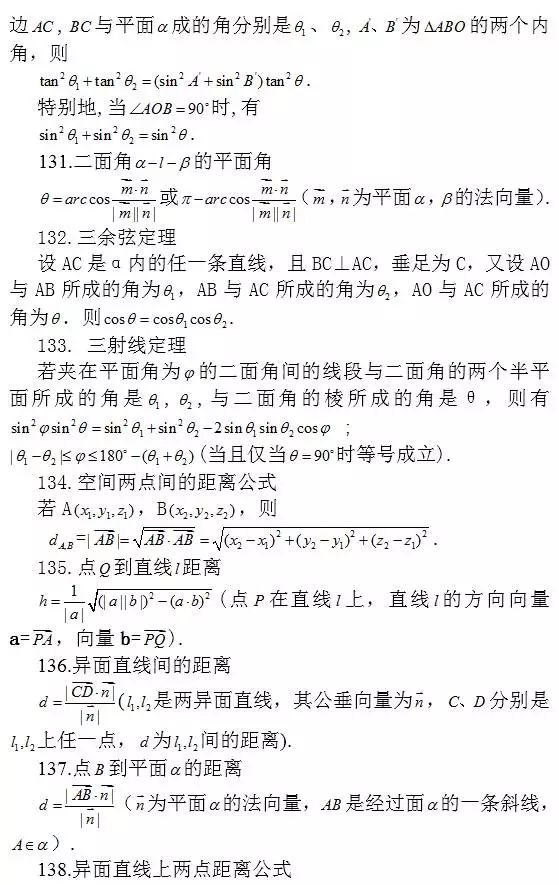 边AC, BC与平面α成的角分别是θ₁、θ₂, A'、B'为ΔABO的两个内
角, 则
tan²θ₁+tan²θ₂=(sin²A'+sin²B')tan²θ.
特别地,当∠AOB=90°时,有
sin²θ₁+sin²θ₂=sin²θ.
131.二面角α-l-β的平面角
θ=arc cos(m⃗·n⃗/|m⃗||n⃗|)或π-arc cos(m⃗·n⃗/|m⃗||n⃗|) (m⃗,n⃗为平面α,β的法向量).
132.三余弦定理
设AC是α内的任一条直线, 且BC⊥AC, 垂足为C, 又设AO
与AB所成的角为θ₁, AB与AC所成的角为θ₂, AO与AC所成的
角为θ. 则cosθ=cosθ₁cosθ₂.
133. 三射线定理
若夹在平面角为φ的二面角间的线段与二面角的两个半平
面所成的角是θ₁, θ₂, 与二面角的棱所成的角是θ, 则有
sin²φsin²θ=sin²θ₁+sin²θ₂-2sinθ₁sinθ₂cosφ ;
|θ₁-θ₂|≤φ≤180°-(θ₁+θ₂)(当且仅当θ=90°时等号成立).
134.空间两点间的距离公式
若A(x₁,y₁,z₁), B(x₂,y₂,z₂), 则
d_{A,B}=|AB⃗|=√(AB⃗·AB⃗)=√((x₂-x₁)²+(y₂-y₁)²+(z₂-z₁)²).
135.点Q到直线l距离
h=1/|a| √((|a||b|)²-(a·b)²) (点P在直线l上, 直线l的方向向量
a=PA⃗, 向量b=PQ⃗).
136.异面直线间的距离
d=|CD⃗·n⃗|/|n⃗| (l₁,l₂是两异面直线, 其公垂向量为n⃗, C、D分别是
l₁,l₂上任一点, d为l₁,l₂间的距离).
137.点B到平面α的距离
d=|AB⃗·n⃗|/|n⃗| (n⃗为平面α的法向量, AB是经过面α的一条斜线,
A∈α).
138.异面直线上两点距离公式